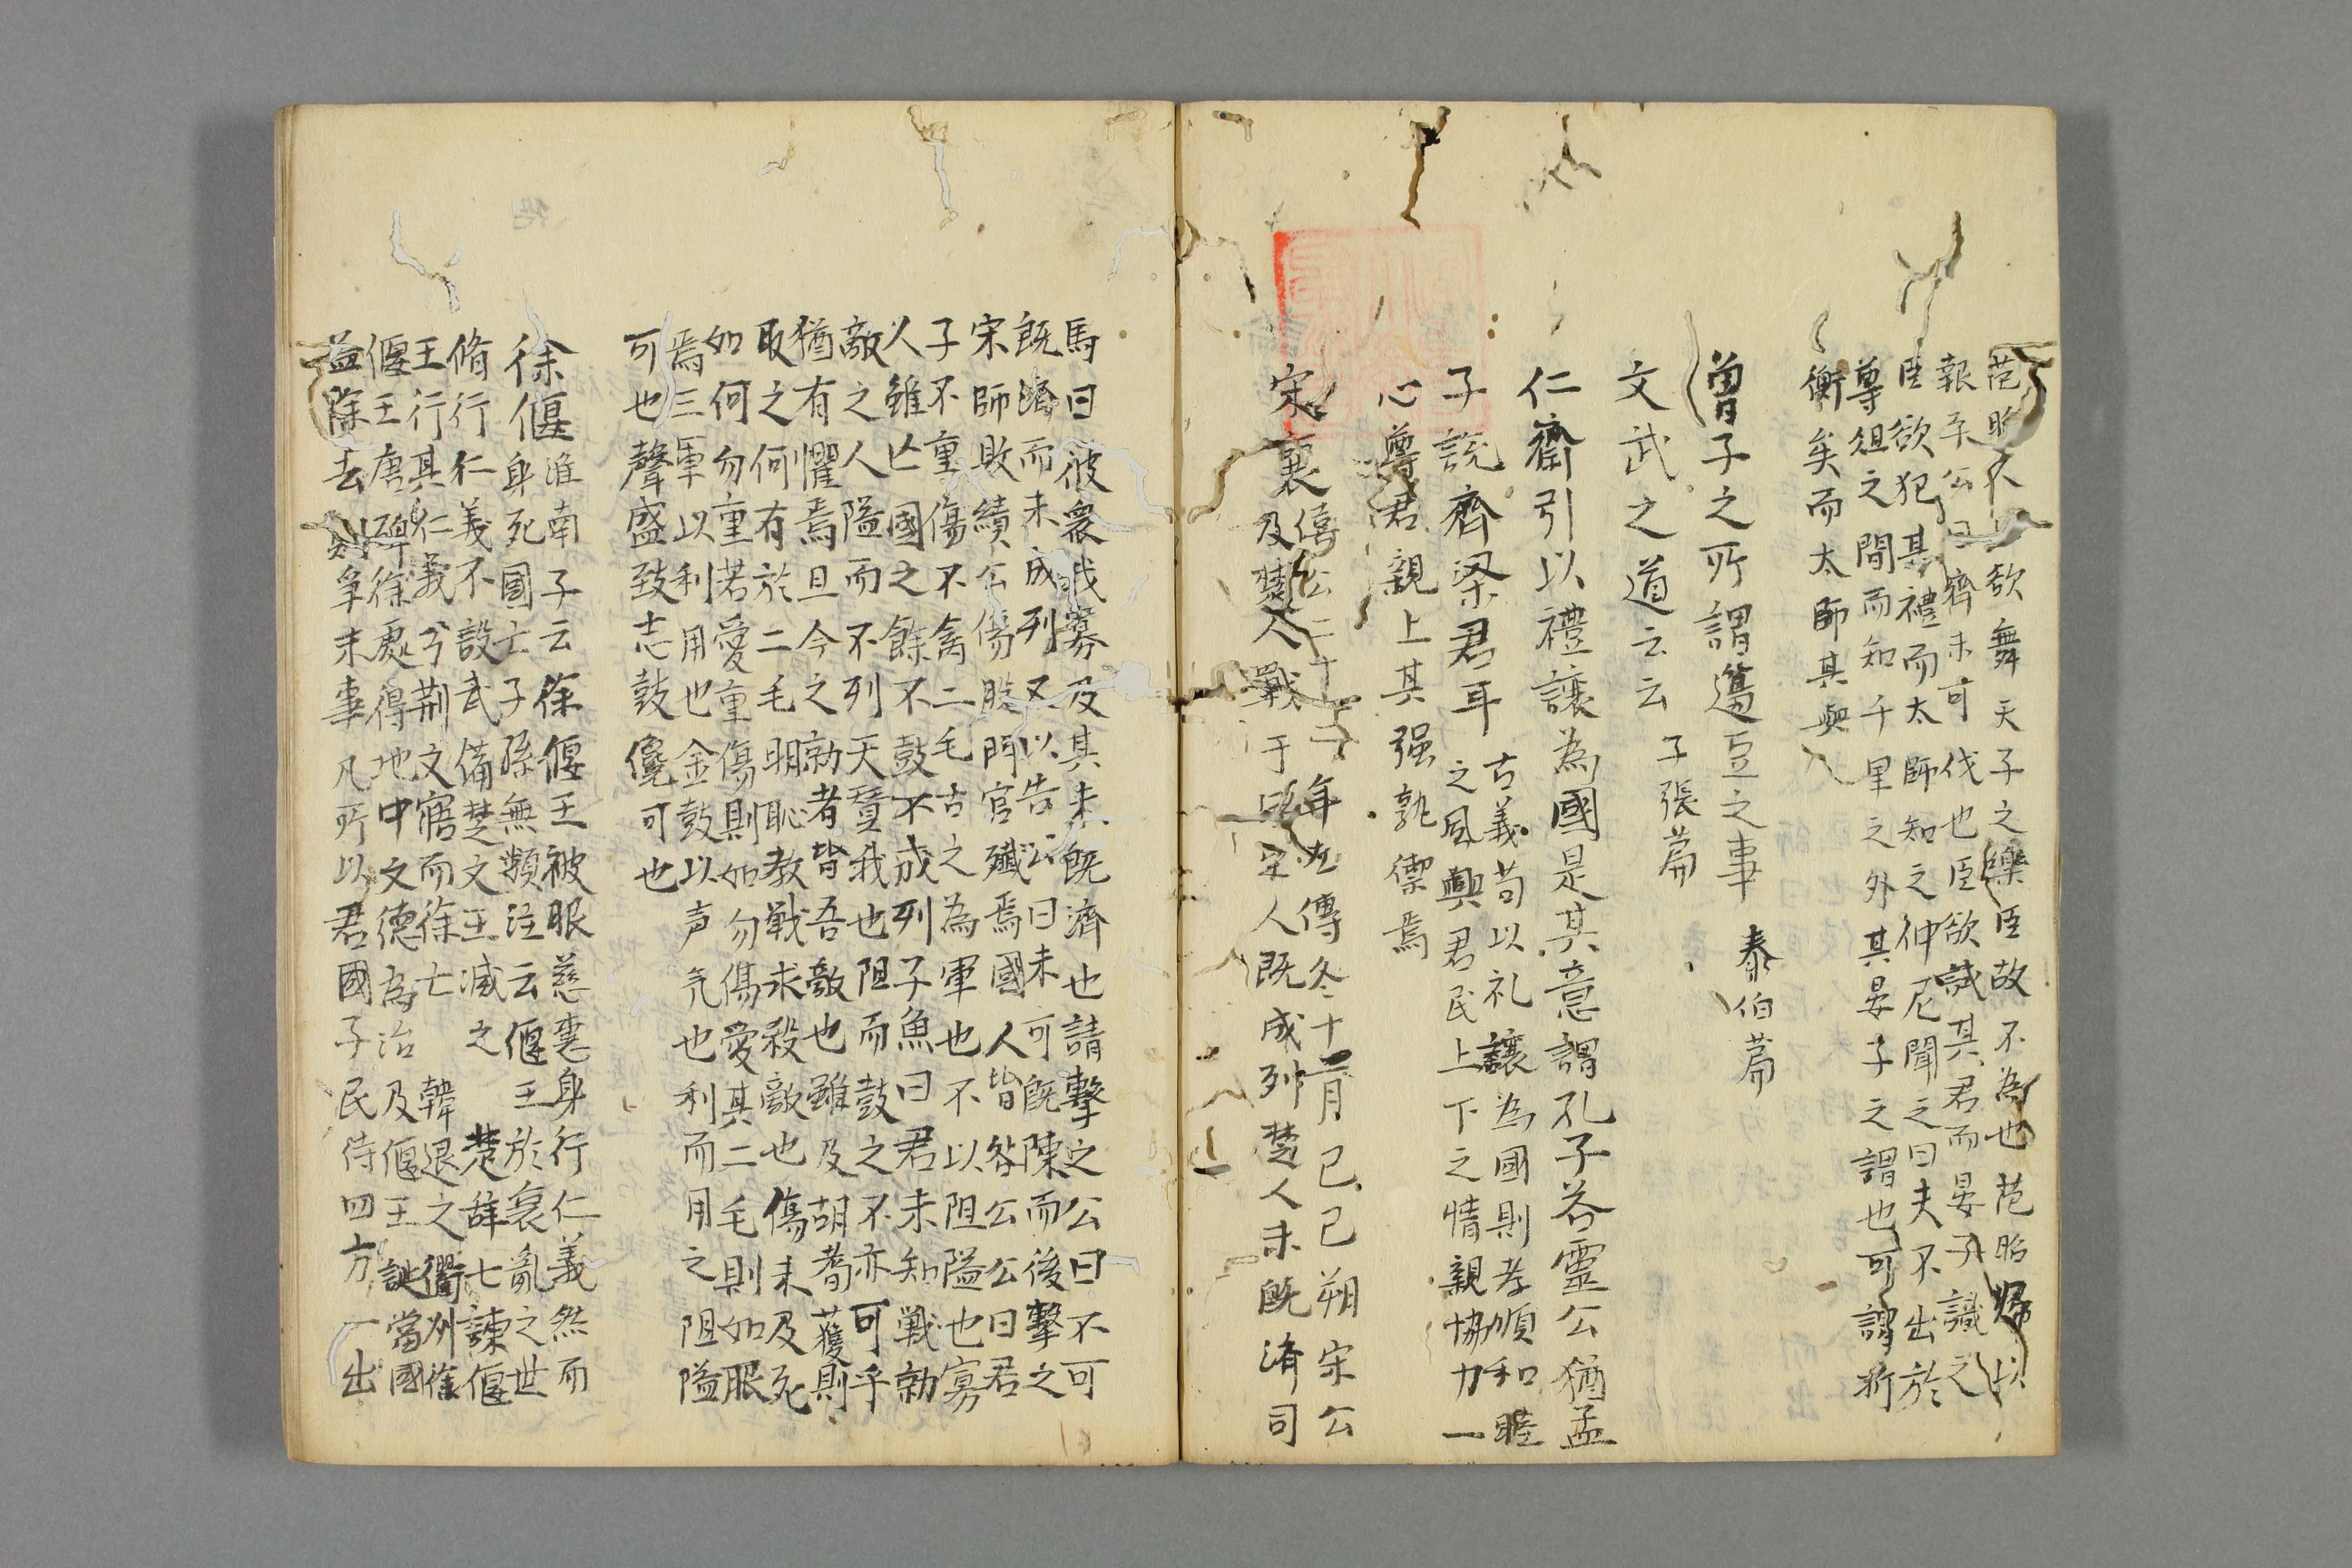 范昭不歌舞天子之樂臣故不為也范昭帰以
報平公曰齊未可伐也臣欲試其君而晏子識之
臣欲犯其禮而太師知之仲尼聞之曰夫不出於
尊俎之間而知千里之外其晏子之謂也可謂折
衝矣而太師其與
曽子之所謂籩豆之事 泰伯篇
文武之道云云 子張篇
仁齋引以禮讓為國是其意謂孔子荅靈公猶孟
子說齊梁君耳 古義苟以礼讓為國則孝順和睦
之風興君民上下之情親協力一
心尊君親上其强孰禦焉
宋襄 僖公二十二年左傳冬十一月己巳朔宋公
及楚人戰于泓宋人既成列楚人未既済司
馬曰彼衆我寡及其未既濟也請擊之公曰不可
既濟而未成列又以告公曰未可既陳而後擊之
宋師敗績公傷股門官殲焉國人皆咎公公曰君
子不重傷不禽二毛古之為軍也不以阻隘也寡
人雖亡國之餘不鼓不成列子魚曰君未知戰勍
敵之人隘而不列天賛我也阻而鼓之不亦可乎
猶有懼焉且今之勍者皆吾敵也雖及胡耇獲則
取之何有於二毛明恥教戰求殺敵也傷未及死
如何勿重若愛重傷則如勿傷愛其二毛則如服
焉三軍以利用也金鼓以声気也利而用之阻隘
可也聲盛致志鼓儳可也
徐偃 淮南子云徐偃王被服慈惠身行仁義然而
身死國亡子孫無類注云偃王於衰亂之世
脩行仁義不設武備楚文王滅之 楚辞七諫偃
王行其仁義兮荆文寤而徐亡 韓退之衢州徐
偃王唐碑徐處得地中文德為治及偃王誕當國
益除去刑爭末事凡所以君國子民待四方一出